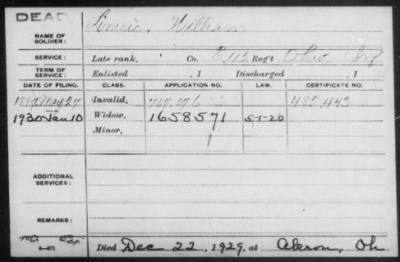 DEAD
NAME OF SOLDIER: William
SERVICE: Late rank, Co. E, 115 Reg't Ohio Inf
TERM OF SERVICE: Enlisted , 1 Discharged , 1
DATE OF FILING. CLASS. APPLICATION NO. LAW. CERTIFICATE NO.
May 27 Invalid, 485,443
1930 Jan 10 Widow, 1658571 5-1-20
Minor,
ADDITIONAL SERVICES:
REMARKS:
Died Dec 22, 1929, at Akron, Oh.